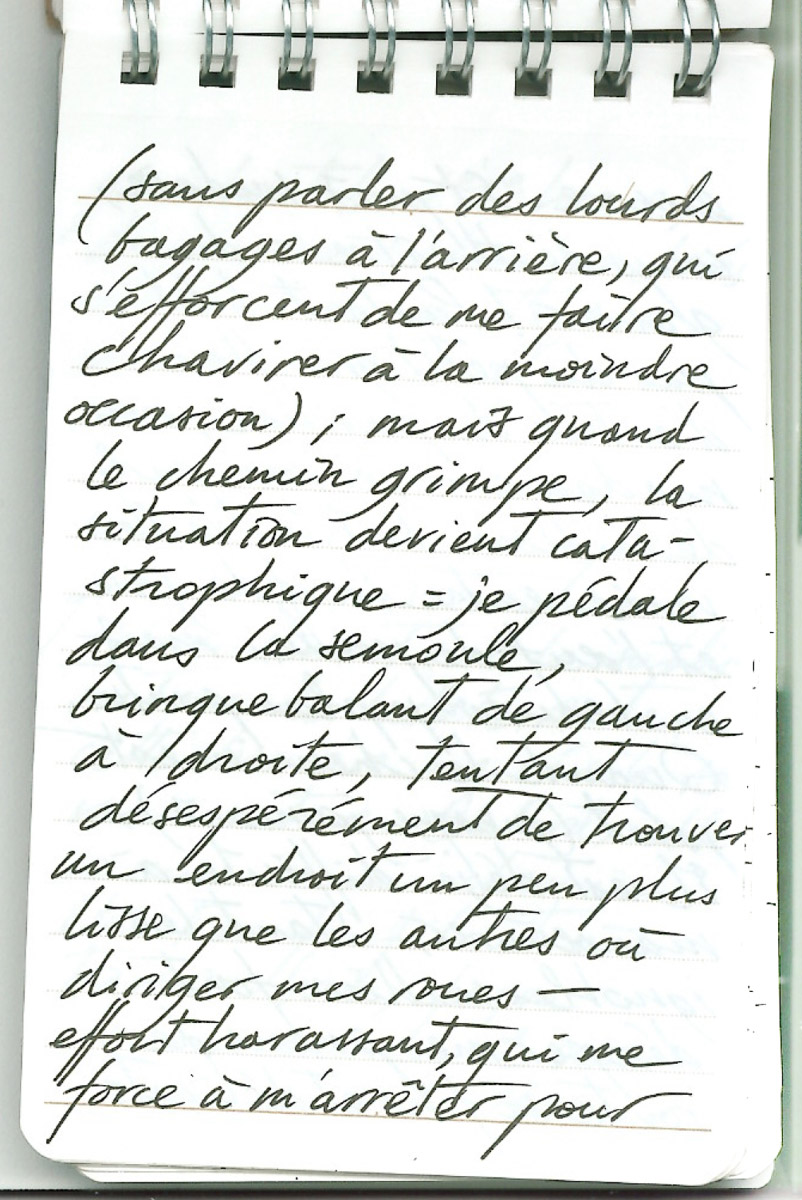 (sans parler des lourds
bagages à l'arrière, qui
s'efforcent de me faire
chavirer à la moindre
occasion) ; mais quand
le chemin grimpe, la
situation devient cata-
strophique = je pédale
dans la semoule,
bringuebalant de gauche
à droite, tentant
désespérément de trouver
un endroit un peu plus
lisse que les autres où
diriger mes roues —
effort harassant, qui me
force à m'arrêter pour